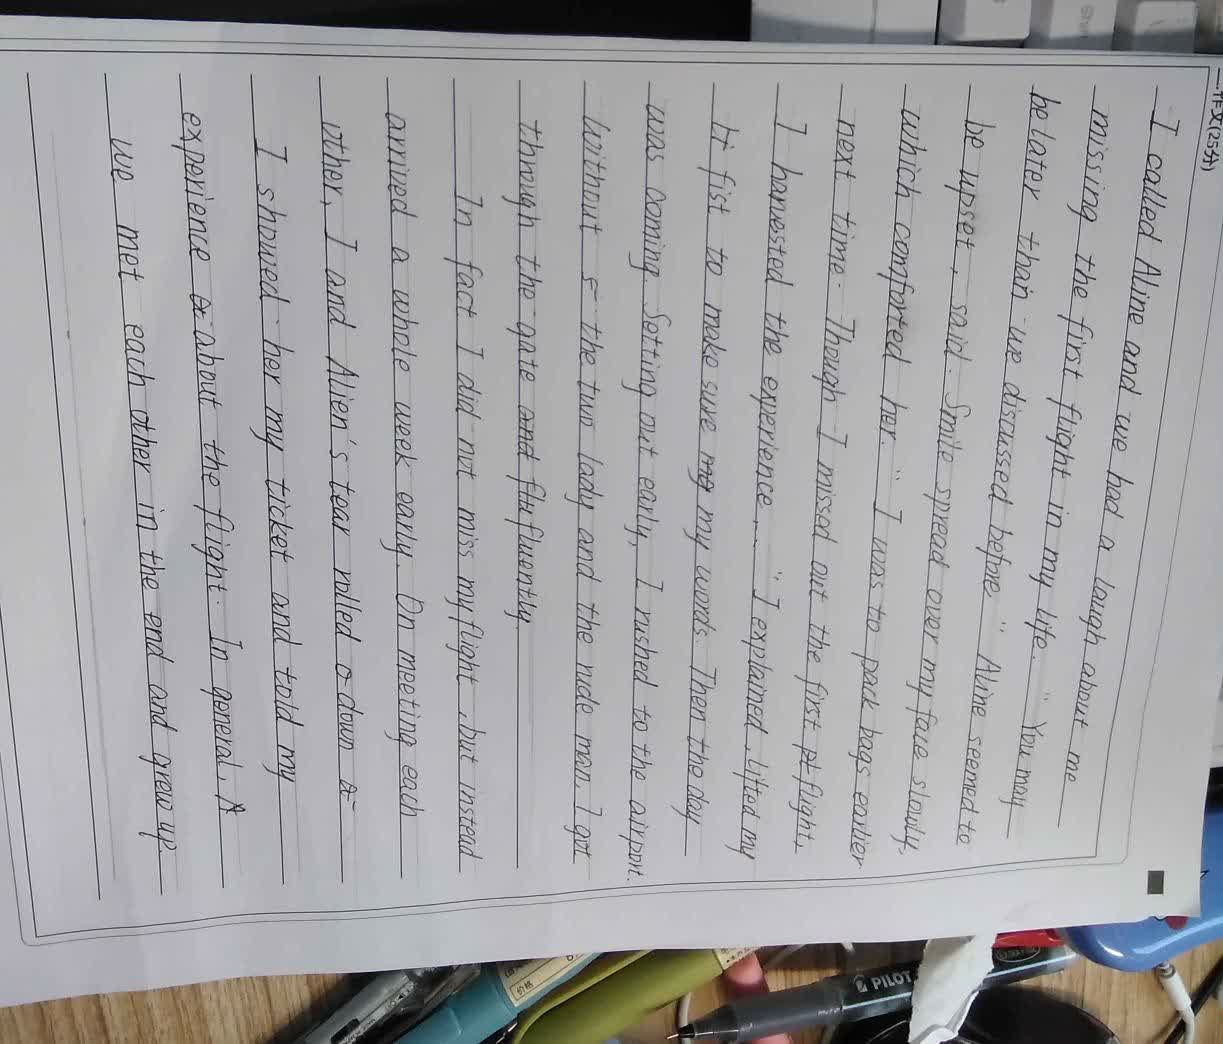 作文(25分)
I called Aline and we had a laugh about me
missing the first flight in my life. "You may
be later than we discussed before" Aline seemed to
be upset, said. Smile spread over my face slowly,
which comforted her. " I was to pack bags earlier
next time. Though I missed out the first flight,
I harvested the experience... " I explained, lifted my
fist to make sure my words. Then the day
was coming. Setting out early, I rushed to the airport.
Without the two lady and the rude man, I got
through the gate fluently.
In fact I did not miss my flight, but instead
arrived a whole week early. On meeting each
other, I and Alien's tear rolled down
I showed her my ticket and told my
experience about the flight. In general, A
we met each other in the end and grew up.
PILOT